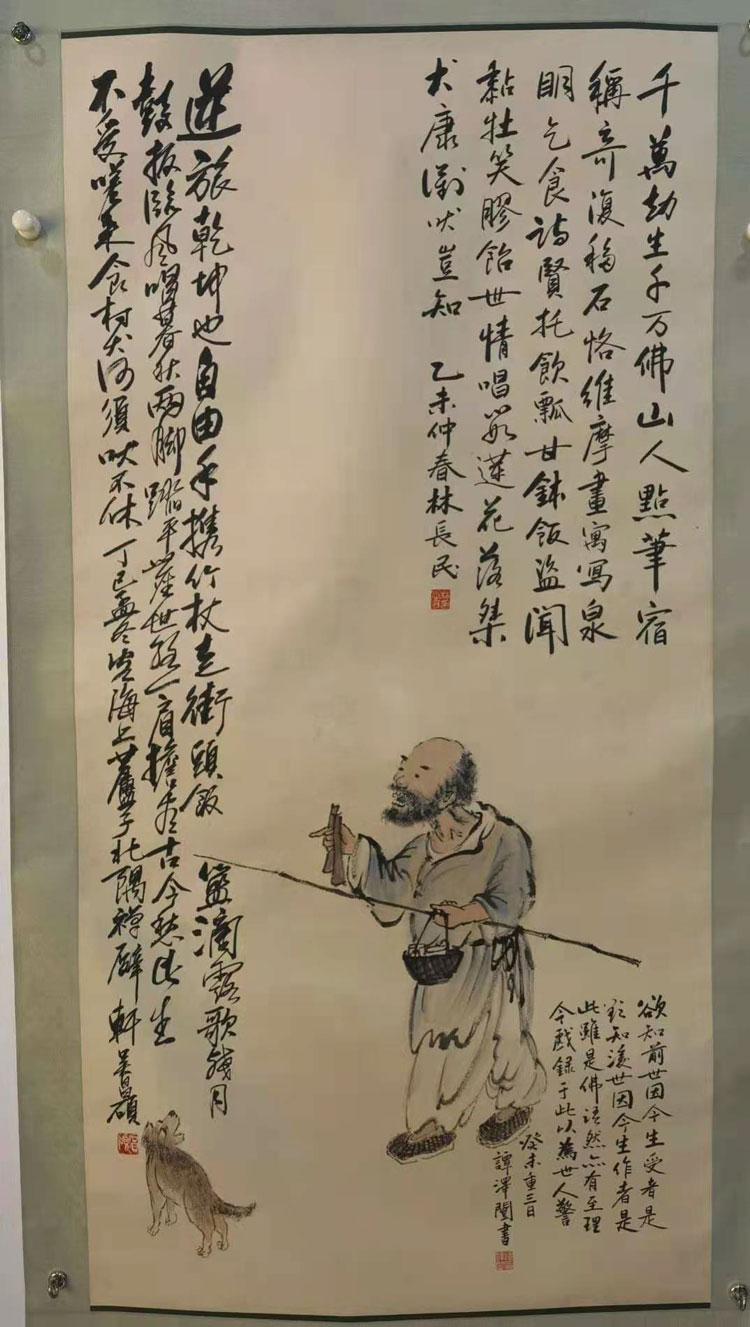 千萬劫生千万佛山人點筆宿
稱奇復移石恪維摩畫寓寫泉
明乞食詩賢托飲瓢甘鉢飯盜聞
黏牡笑膠飴世情唱罢蓮花落桀
犬康衢吠豈知 乙未仲春林長民
逆旅乾坤也自由手携竹杖走街頭飯籃滴露歌残月
鼓板臨風唱暮秋兩脚踏平塵世路一肩擔盡古今愁此生
不受嗟来食村犬何須吠不休 丁巳孟冬客海上蘆子北隅禅甓軒 吳昌碩
欲知前世因今生受者是
欲知後世因今生作者是
此雖是佛語然亦有至理
今戲録于此以為世人警
癸未重三日
譚澤闓書